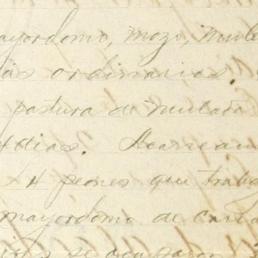 mayordomo, mozo, mule
ordinarias.
pastura de mulada
dias. Acarrean
4 peones que trab
mayordomo de
se ocuparon